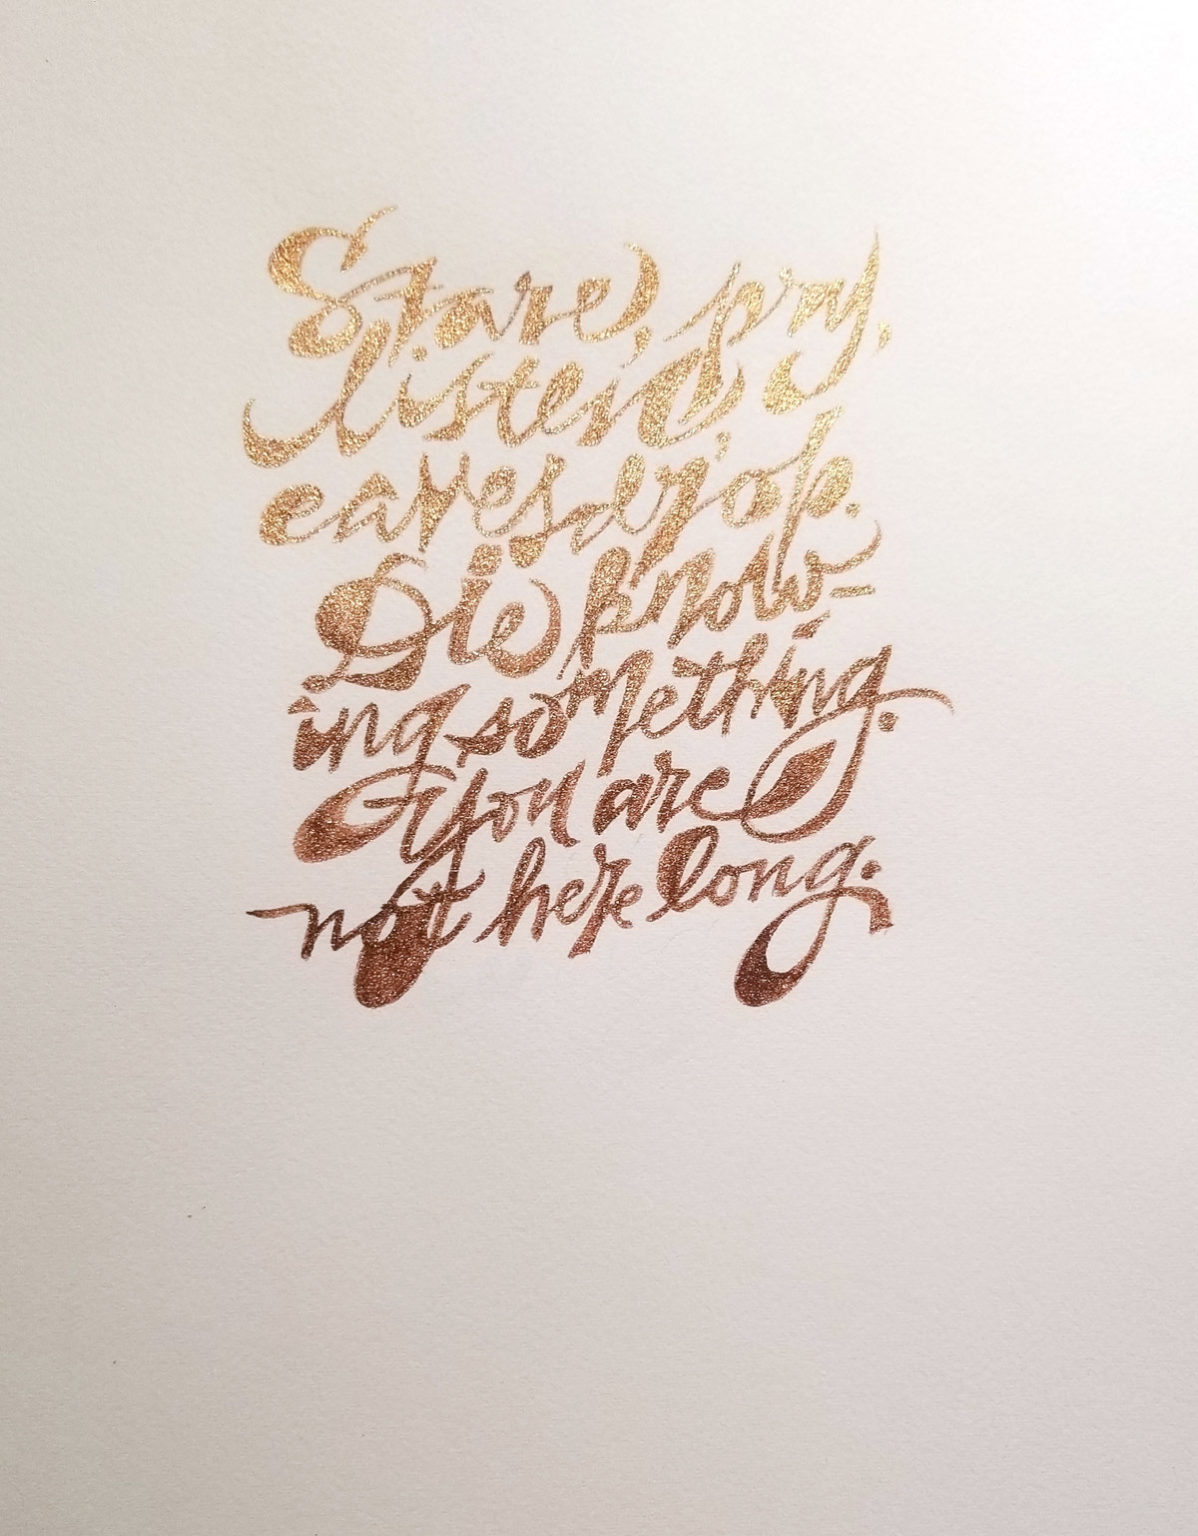 Stare, pry,
listen,
eavesdrop.
Die know-
ing something.
You are
not here long.